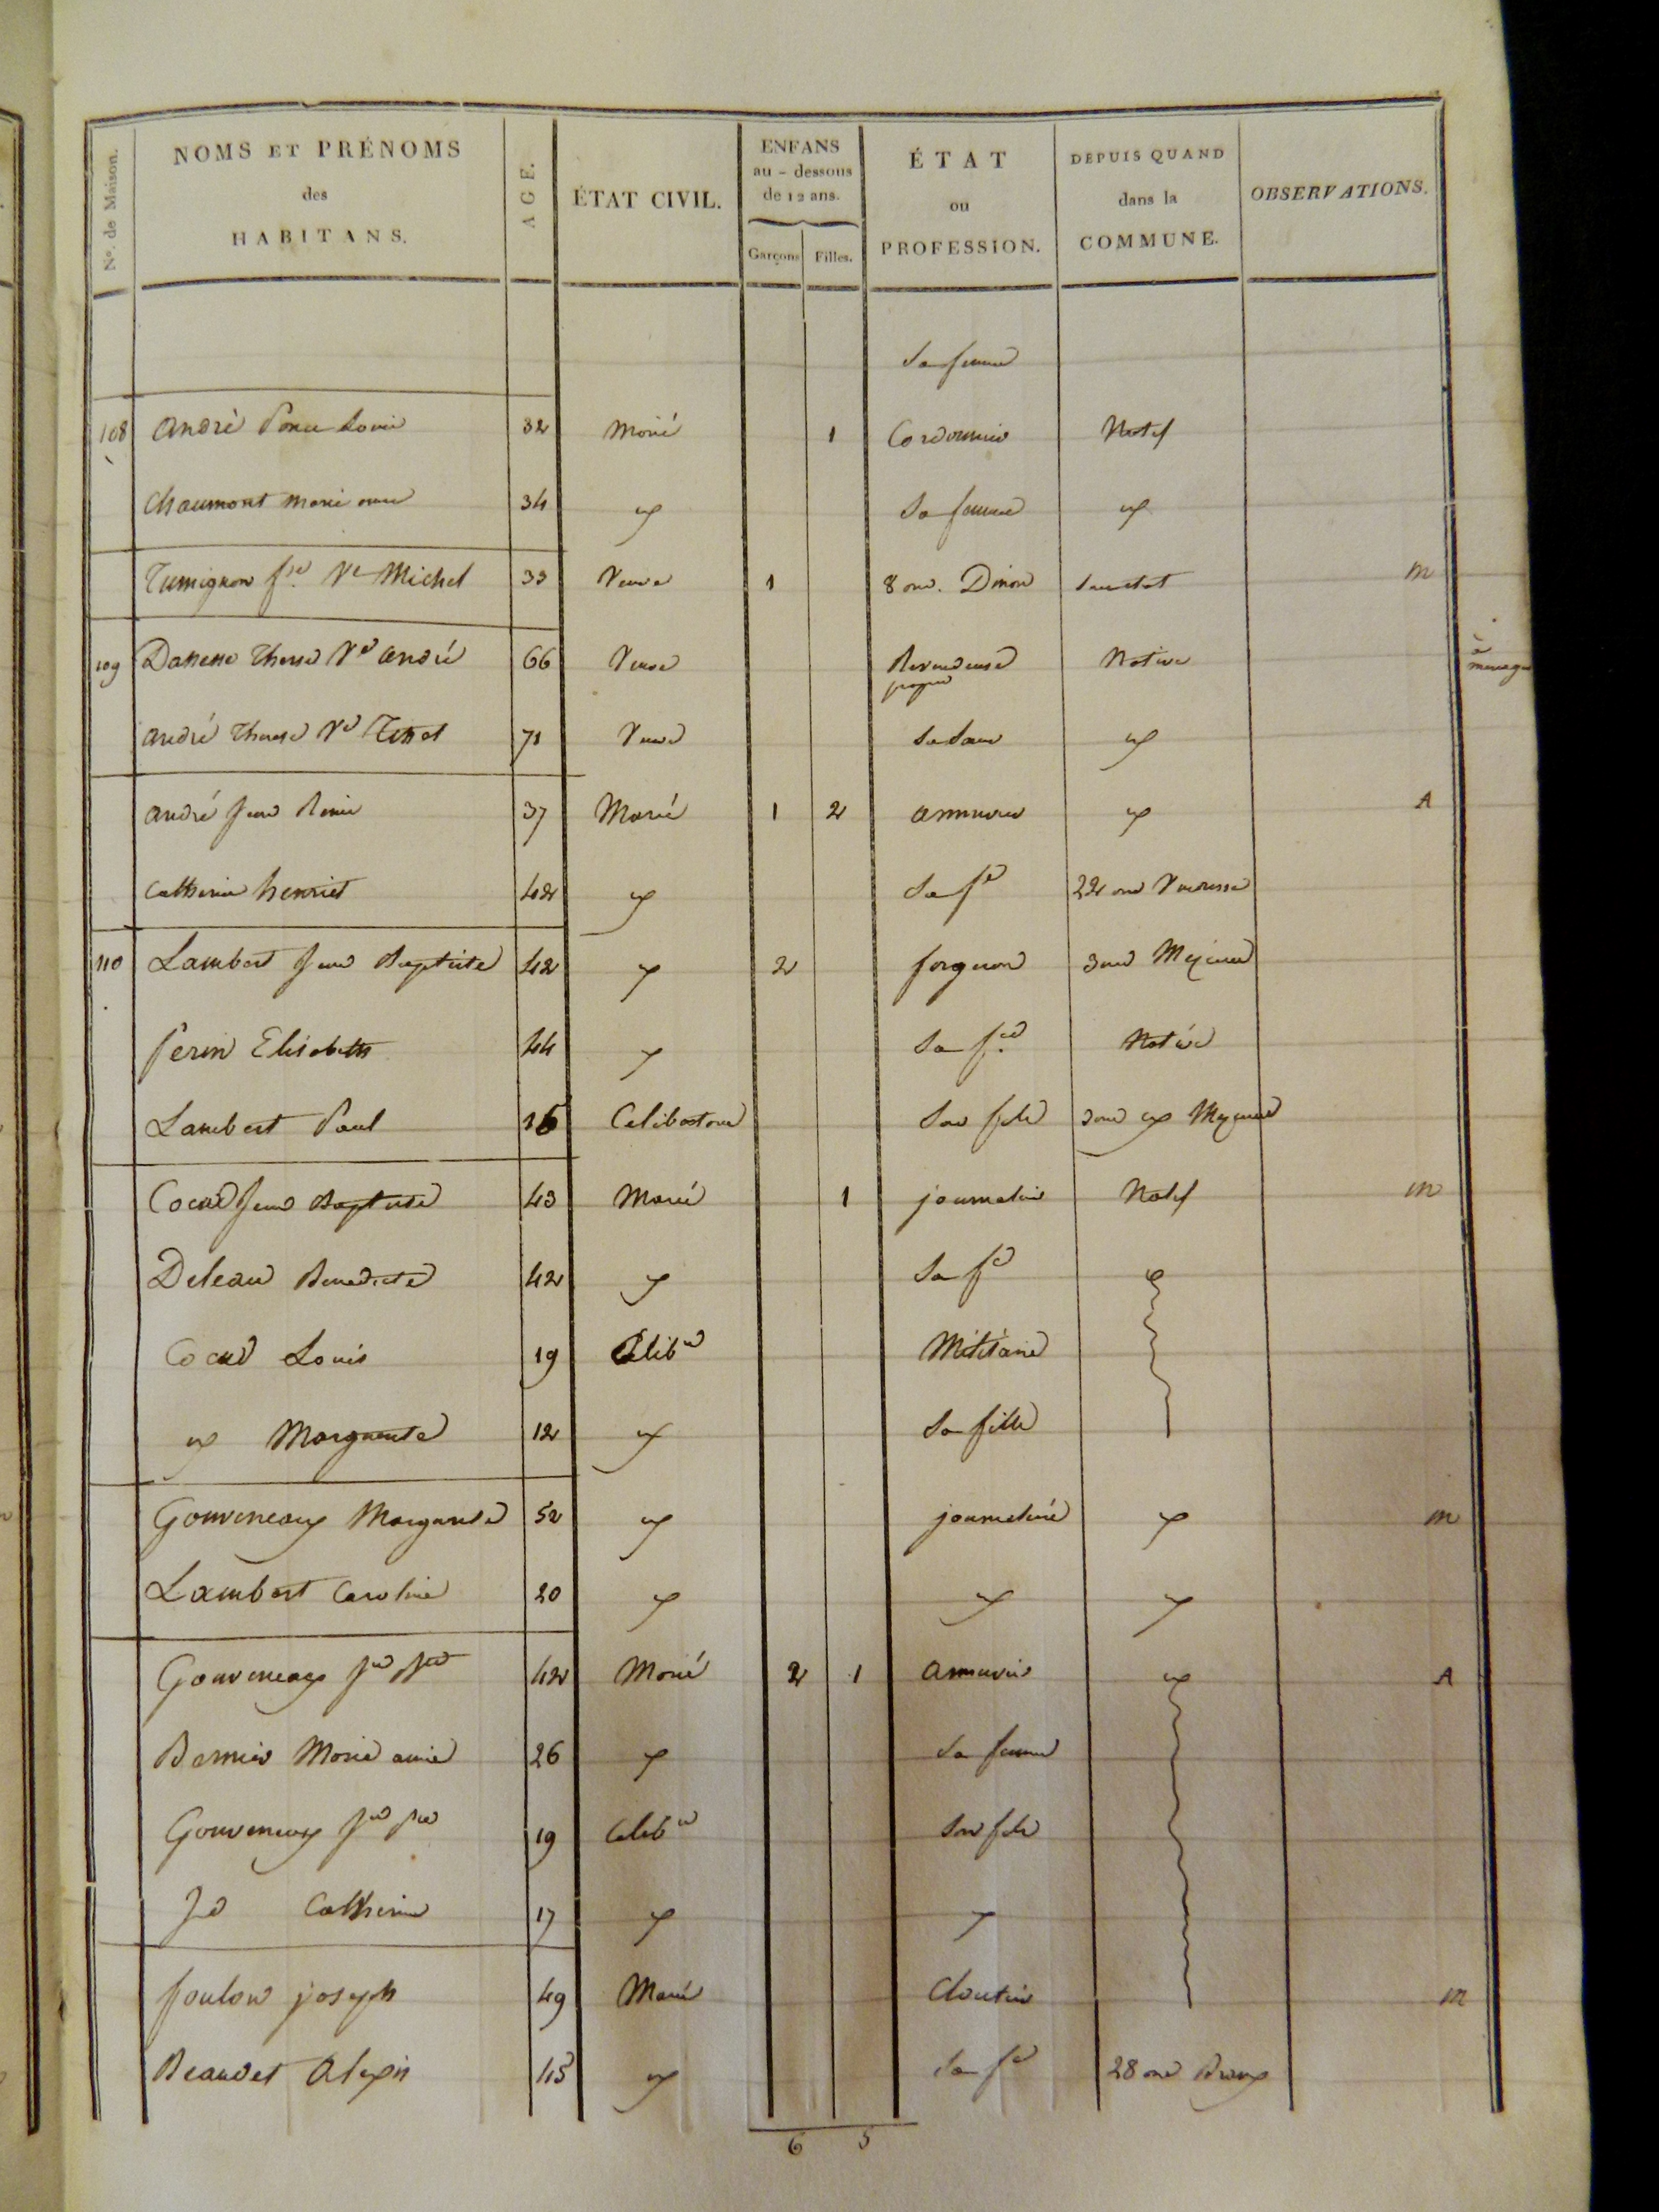 N.º de Maison.
NOMS ET PRÉNOMS
des
HABITANS.
AGE.
ÉTAT CIVIL.
ENFANS
au-dessous
de 12 ans.
Garçons Filles.
ÉTAT
ou
PROFESSION.
DEPUIS QUAND
dans la
COMMUNE.
OBSERVATIONS.
Sa femme
108 André Ponce Louis 32 Marié 1 Cordonnier Natif
Chaumont Marie anne 34 id Sa femme id
Tumignon Ve Michel 33 Veuve 1 8 ans. Dinon m
109 Therese Ve André 66 Veuve Revendeuse Native
à
menage
André Therese Ve 71 Veuve id
André Jean 37 Marié 1 2 armurier id A
Catherine henriet 42 id Sa fe 22 ans
110 Lambert Jean Baptiste 42 id 2 forgeron 3 ans
Perin Elisabeth 44 id Sa fe Native
Lambert Paul 16 Celibataire Son fils 3 ans id
Jean Baptiste 43 Marié 1 journalier Natif m
Deleau Benedicte 42 id Sa fe id
Louis 19 Celibre Militaire
id Marguerite 12 id Sa fille
Gouverneaux Marguerite 52 id journaliere id m
Lambert Caroline 20 id id id
Gouverneaux 42 Marié 2 1 armurier id A
Marie anne 26 id Sa femme
Gouverneaux 19 Celibre Son fils
Id Catherine 17 id id
foulon joseph 49 Marié Cloutier m
Beaudet Alexis 45 id Sa fe 28 ans
6 5